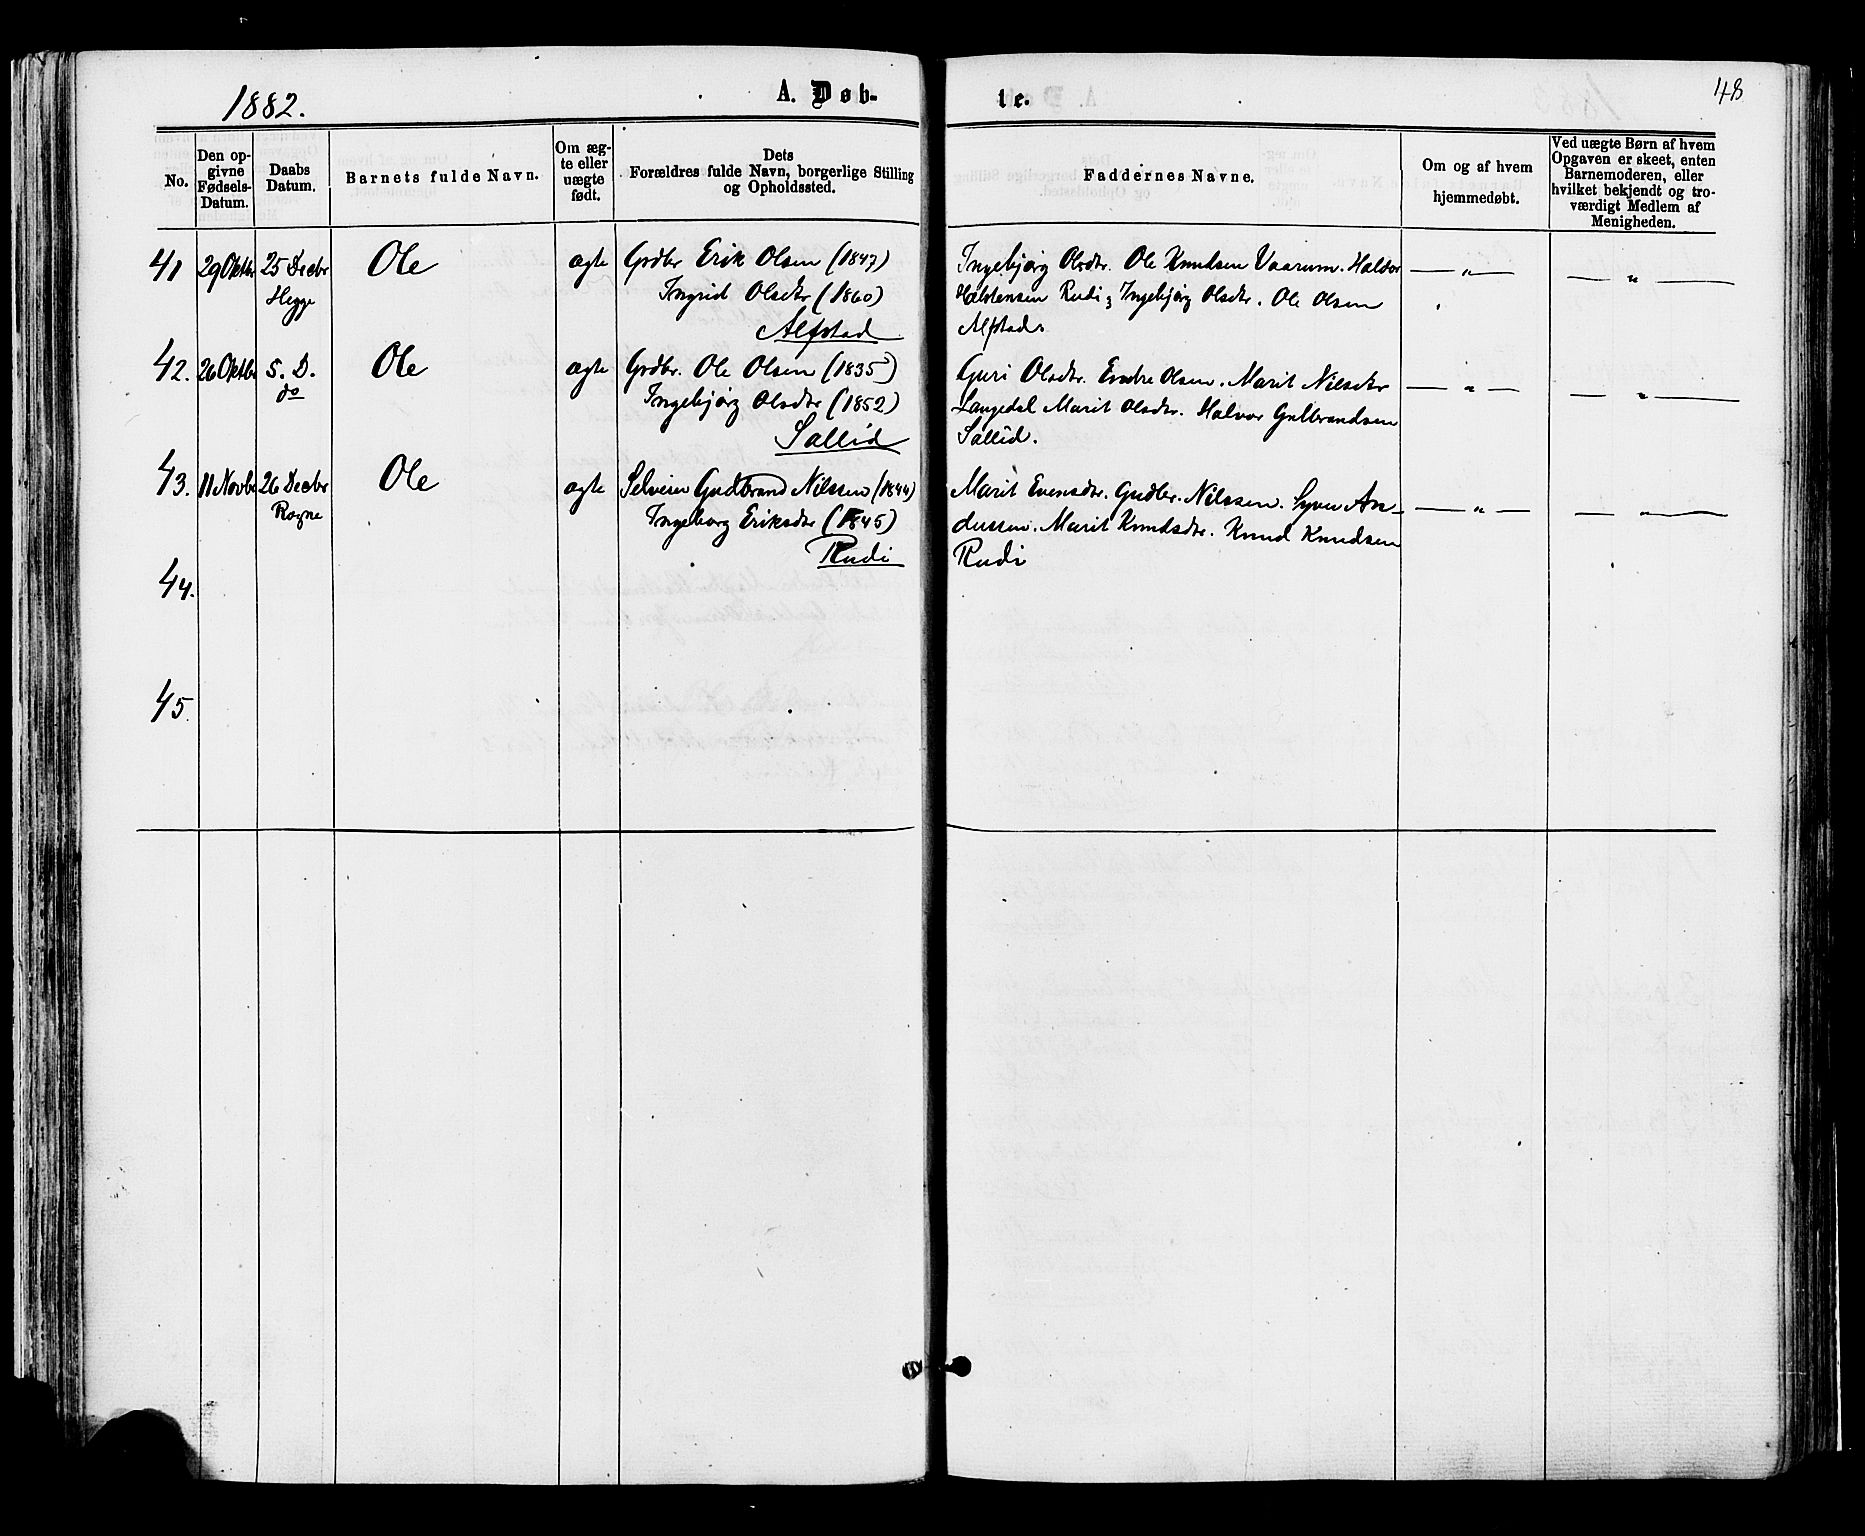 1882.
A. Døb-
te.
48
No.
Den op-
givne
Fødsels-
Datum.
Daabs
Datum.
Barnets fulde Navn.
Om æg-
te eller
uægte
født.
Dets
Forældres fulde Navn, borgerlige Stilling
og Opholdssted.
Faddernes Navne.
Om og af hvem
hjemmedøbt.
Ved uægte Børn af hvem
Opgaven er skeet, enten
Barnemoderen, eller
hvilket bekjendt og tro-
værdigt Medlem af
Menigheden.
41 29 Oktbr 25 Decbr Ole ægte Grdbr Erik Olsen (1847) Ingebjørg Olsdtr. Ole Knudsen Vaarum. Halvor — „ — — „ —
Hegge Ingrid Olsdtr (1860) Halstensen Rudi, Ingebjørg Olsdtr. Ole Olsen
Alfstad Alfstad.
42. 26 Oktbr S. D. Ole ægte Grdbr. Ole Olsen (1835) Guri Olsdtr. Endre Olsen. Marit Nilsdtr — „ — — „ —
do Ingebjørg Olsdtr (1852) Langedal Marit Olsdtr. Halvor Gulbrandsen
Sallid Sallid.
43. 11 Novbr 26 Decbr Ole ægte Selveier Gudbrand Nilssen (1844) Marit Evensdtr. Gudbr. Nilssen. Syver An- — „ — — „ —
Rogne Ingeborg Eriksdtr (1845) derssen. Marit Knudsdtr. Knud Knudsen
Rudi Rudi
44.
45.